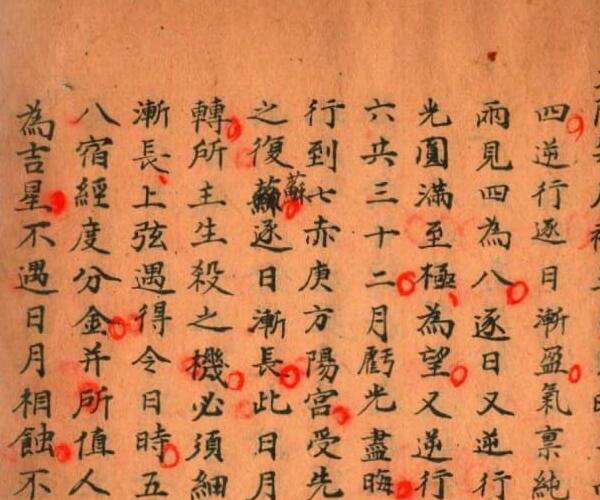 四逆行逐日漸盈氣禀純
兩見四為八逐日又逆行
光圓滿至極為望又逆行
六共三十二月虧光盡晦
行到七赤庚方陽宮受先
之復蘇逐日漸長此日月
轉所主生殺之機必須細
漸長上弦遇得令日時五
八宿經度分金并所值人
為吉星不遇日月相蝕不